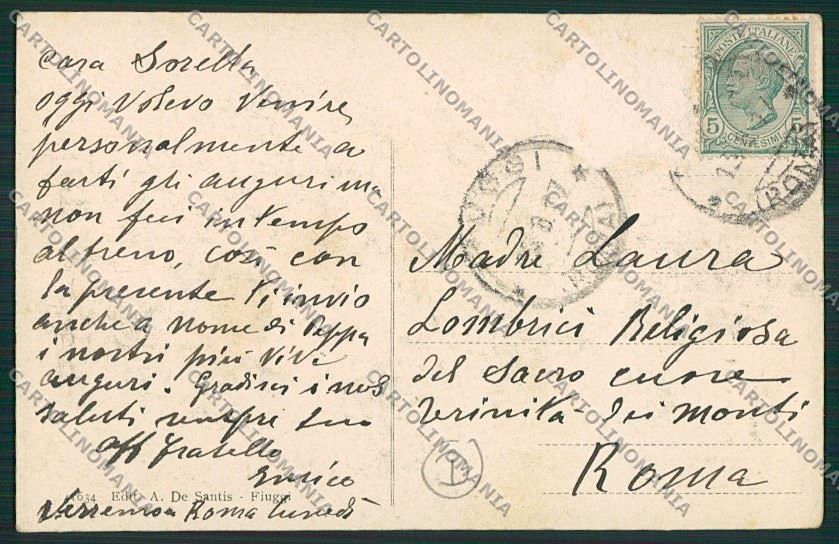 cara Sorella
oggi volevo venire
personalmente a
farti gli auguri ma
non feci in tempo
al treno, così con
la presente ti invio
anche a nome di Peppa
i nostri più vivi
auguri. Gradisci i nostri
saluti sempre tuo
aff fratello
Enrico
Verremo a Roma lunedì
41034 Edit. A. De Santis - Fiuggi
POSTE ITALIANE
5 CENTESIMI 5
FIUGGI
ROMA
Madre Laura
Lombrici Religiosa
del Sacro cuore
Trinità dei Monti
Roma
CARTOLINOMANIA